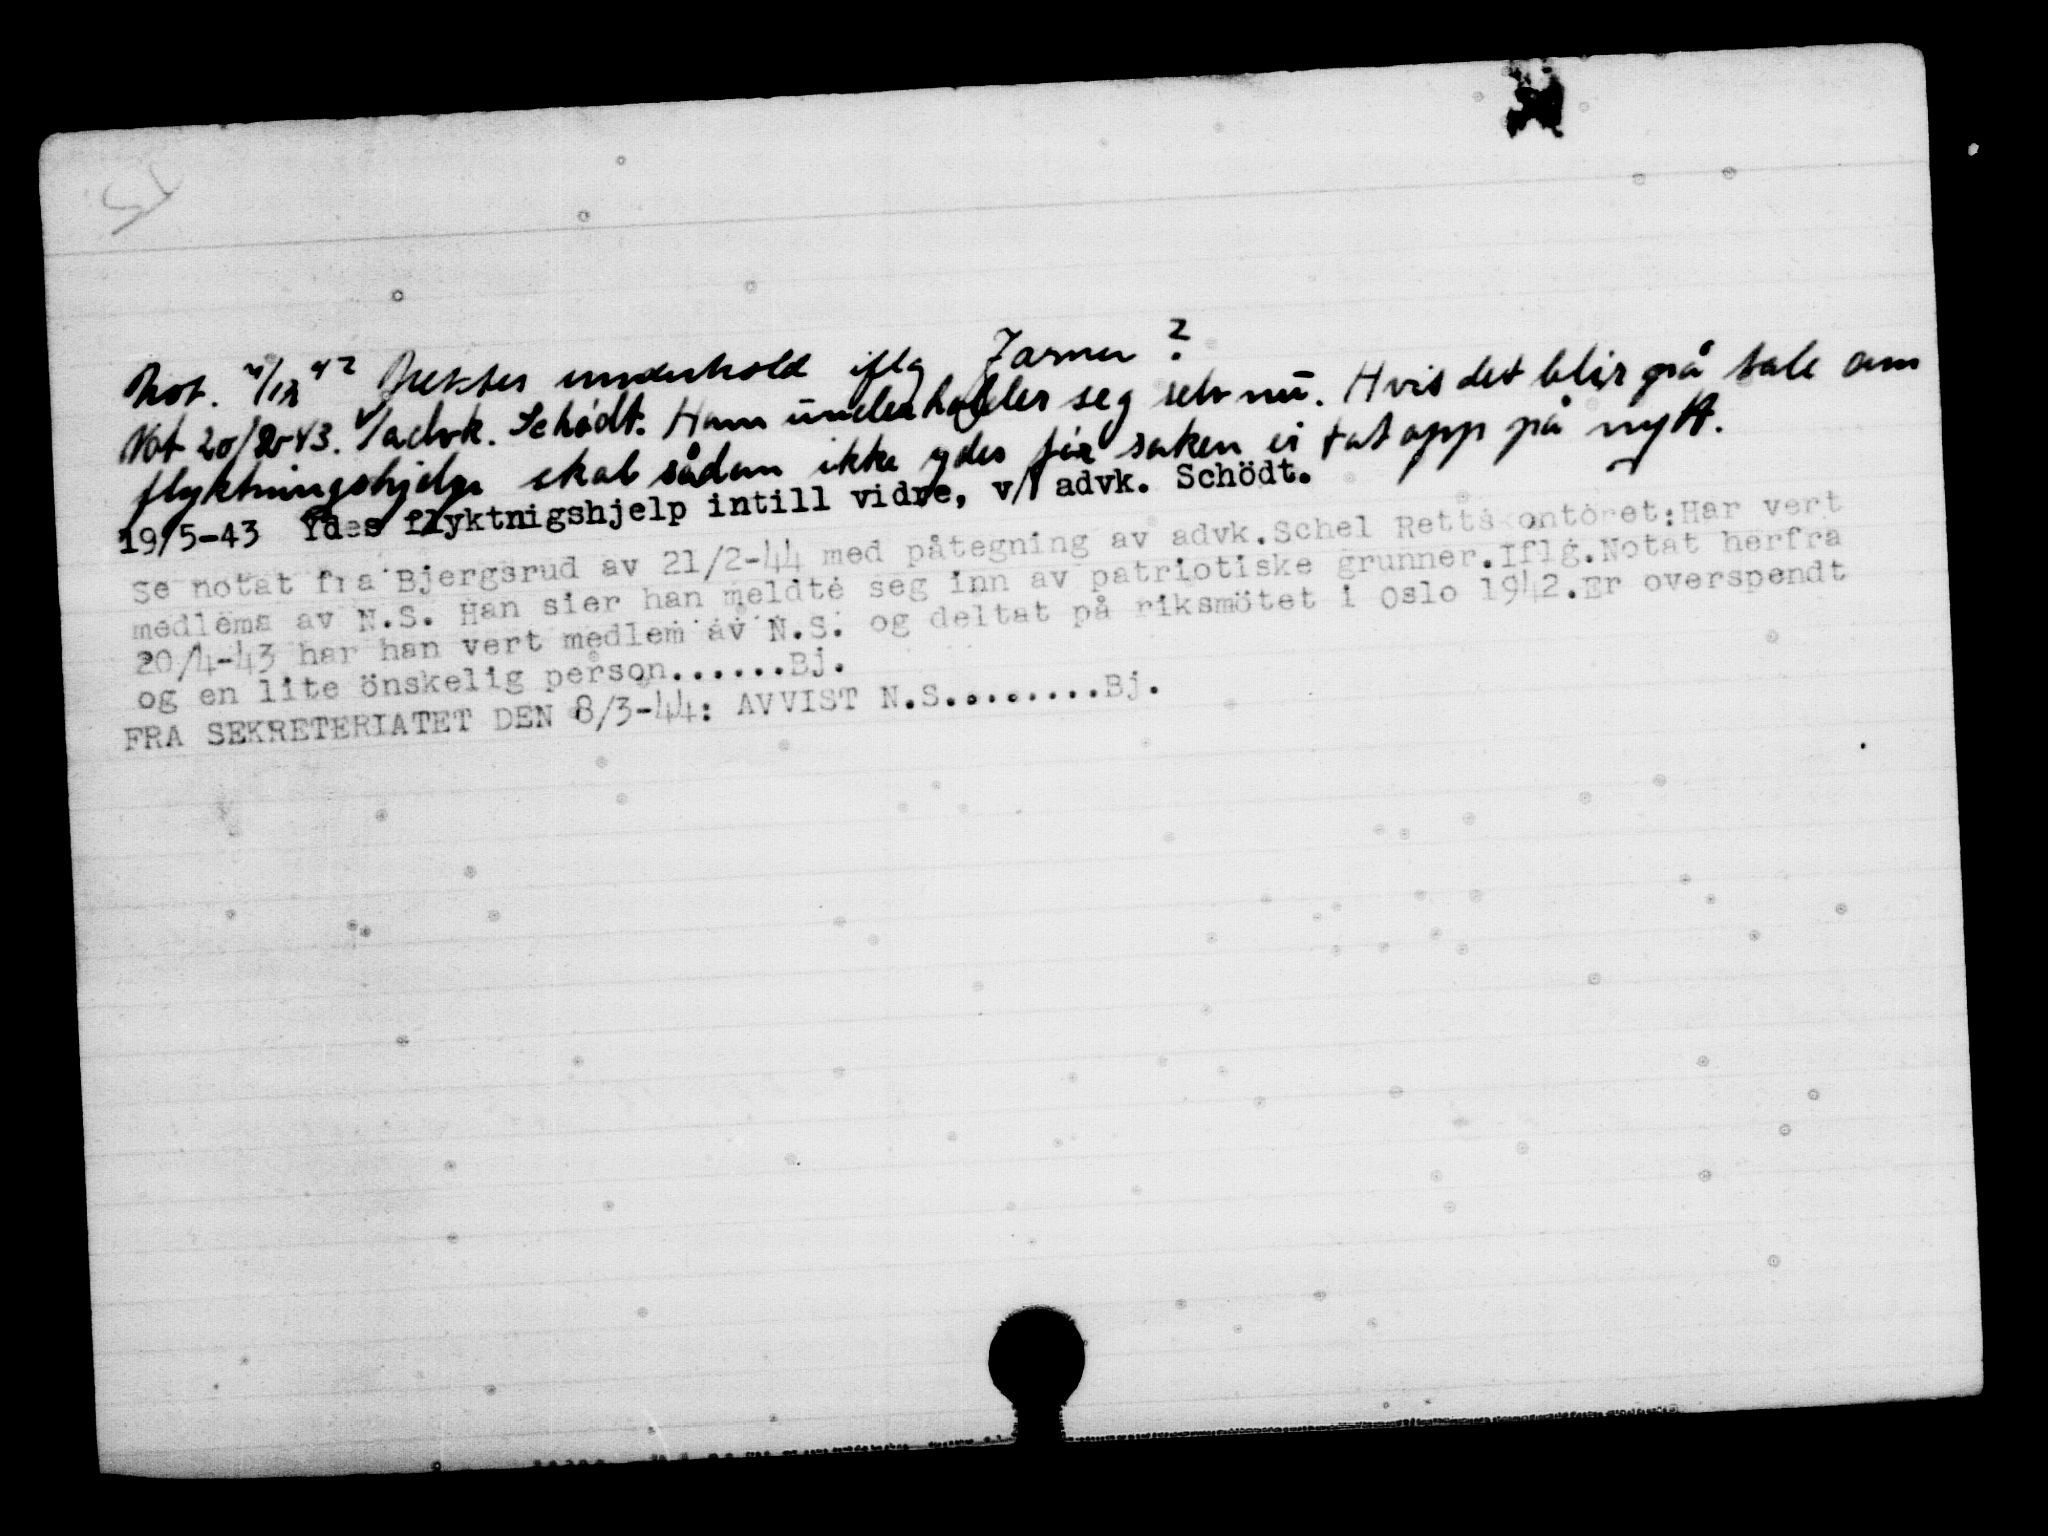 Not. 4/12 42 Nektes underhold iflg Jarner ?
Not 20/2-43. V/advk. Schödt. Ham underholder seg selv nu. Hvis det blir på tale om
flyktningshjelp skal sådan ikke ydes før saken er tat opp på nytt.
19/5-43 Ydes flyktnigshjelp intill vidre, v/ advk. Schödt.
Se notat fra Bjergsrud av 21/2-44 med påtegning av advk.Schel Rettskontoret:Har vert
medlems av N.S. Han sier han meldte seg inn av patriotiske grunner.Iflg.Notat herfra
20/4-43 har han vert medlem av N.S. og deltat på riksmötet i Oslo 1942.Er overspendt
og en lite önskelig person......Bj.
FRA SEKRETERIATET DEN 8/3-44: AVVIST N.S........Bj.